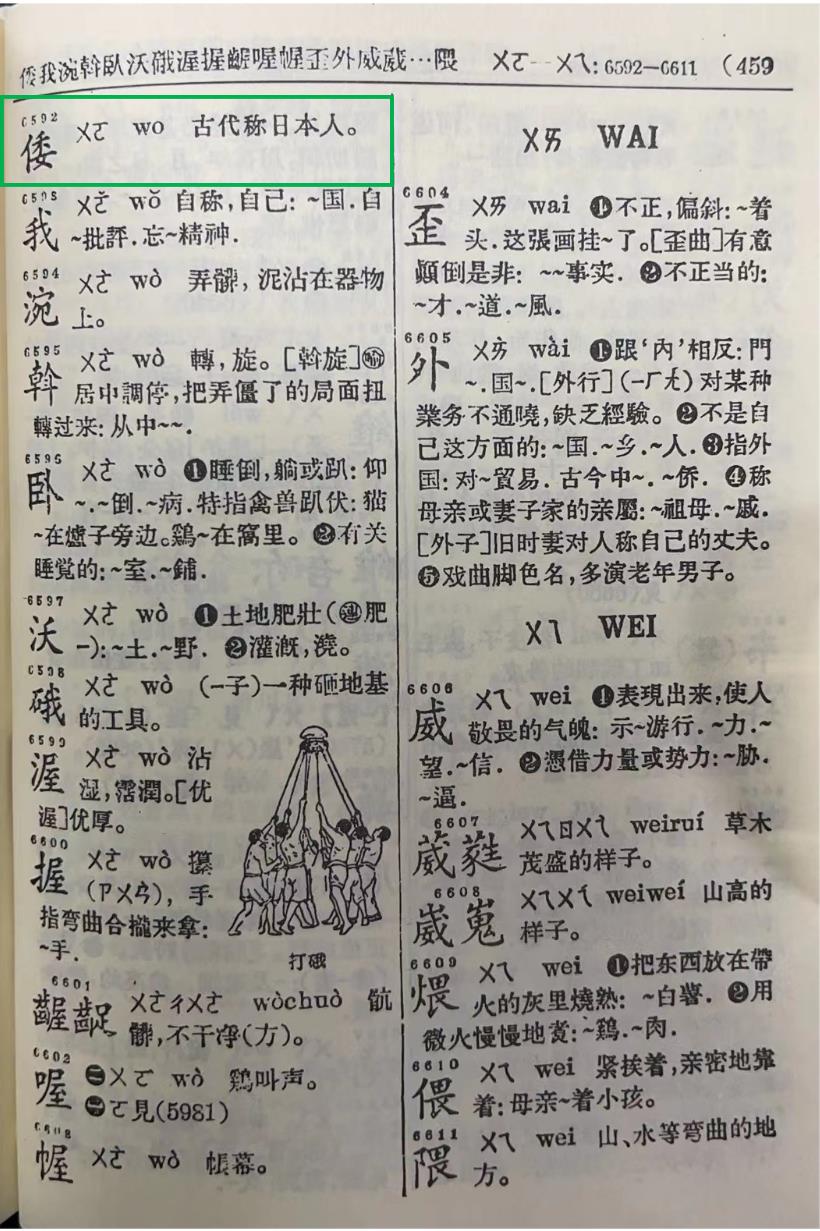 倭我涴斡臥沃硪渥握齷喔幄歪外威葳…隈 ㄨㄛ--ㄨㄟ: 6592—6611 (459
6592
倭 ㄨㄛ wo 古代称日本人。
6593
我 ㄨㄛˇ wǒ 自称,自己: ~国.自
~批評.忘~精神.
6594
涴 ㄨㄛˋ wò 弄髒, 泥沾在器物
上。
6595
斡 ㄨㄛˋ wò 轉,旋。[斡旋]㊌
居中調停,把弄僵了的局面扭
轉过来: 从中~~.
6596
卧 ㄨㄛˋ wò ❶睡倒,躺或趴: 仰
~.~倒.~病.特指禽兽趴伏: 猫
~在爐子旁边。鷄~在窩里。❷有关
睡觉的:~室.~鋪.
6597
沃 ㄨㄛˋ wò ❶土地肥壯(㊣肥
—):~土.~野. ❷灌漑,澆。
6598
硪 ㄨㄛˋ wò (—子)一种砸地基
的工具。
6599
渥 ㄨㄛˋ wò 沾
湿,霑潤。[优
渥]优厚。
6600
握 ㄨㄛˋ wò 攥
(ㄗㄨㄢˋ), 手
指弯曲合攏来拿:
~手.
打硪
6601
齷齪 ㄨㄛˋㄔㄨㄛˋ wòchuò 骯
髒,不干净(方)。
6602
喔 ㊀ㄨㄛ wò 鷄叫声。
㊁ㄛ見(5981)
6603
幄 ㄨㄛˋ wò 帳幕。
ㄨㄞ WAI
6604
歪 ㄨㄞ wai ❶不正,偏斜:~着
头.这張画挂~了。[歪曲]有意
顚倒是非: ~~事实. ❷不正当的:
~才.~道.~風.
6605
外 ㄨㄞˋ wài ❶跟‘内’相反: 門
~.国~.[外行](—ㄏㄤˊ)对某种
業务不通曉,缺乏經驗。❷不是自
己这方面的:~国.~乡.~人.❸指外
国: 对~貿易. 古今中~.~侨. ❹称
母亲或妻子家的亲屬:~祖母.~戚.
[外子]旧时妻对人称自己的丈夫。
❺戏曲脚色名,多演老年男子。
ㄨㄟ WEI
6606
威 ㄨㄟ wei ❶表現出来,使人
敬畏的气魄: 示~游行.~力.~
望.~信. ❷憑借力量或势力:~胁.
~逼.
6607
葳蕤 ㄨㄟㄖㄨㄟˊ weiruí 草木
茂盛的样子。
6608
崴嵬 ㄨㄟㄨㄟˊ weiweí 山高的
样子。
6609
煨 ㄨㄟ wei ❶把东西放在帶
火的灰里燒熟: ~白薯. ❷用
微火慢慢地煮:~鷄.~肉.
6610
偎 ㄨㄟ wei 紧挨着,亲密地靠
着:母亲~着小孩。
6611
隈 ㄨㄟ wei 山、水等弯曲的地
方。